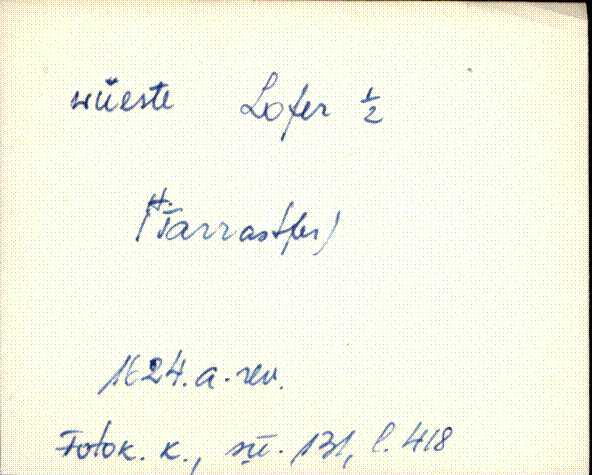 wüeste Lofer ½
(Tarrastfer)
1624. a. rev.
Fotok. k., sü. 131, l. 418